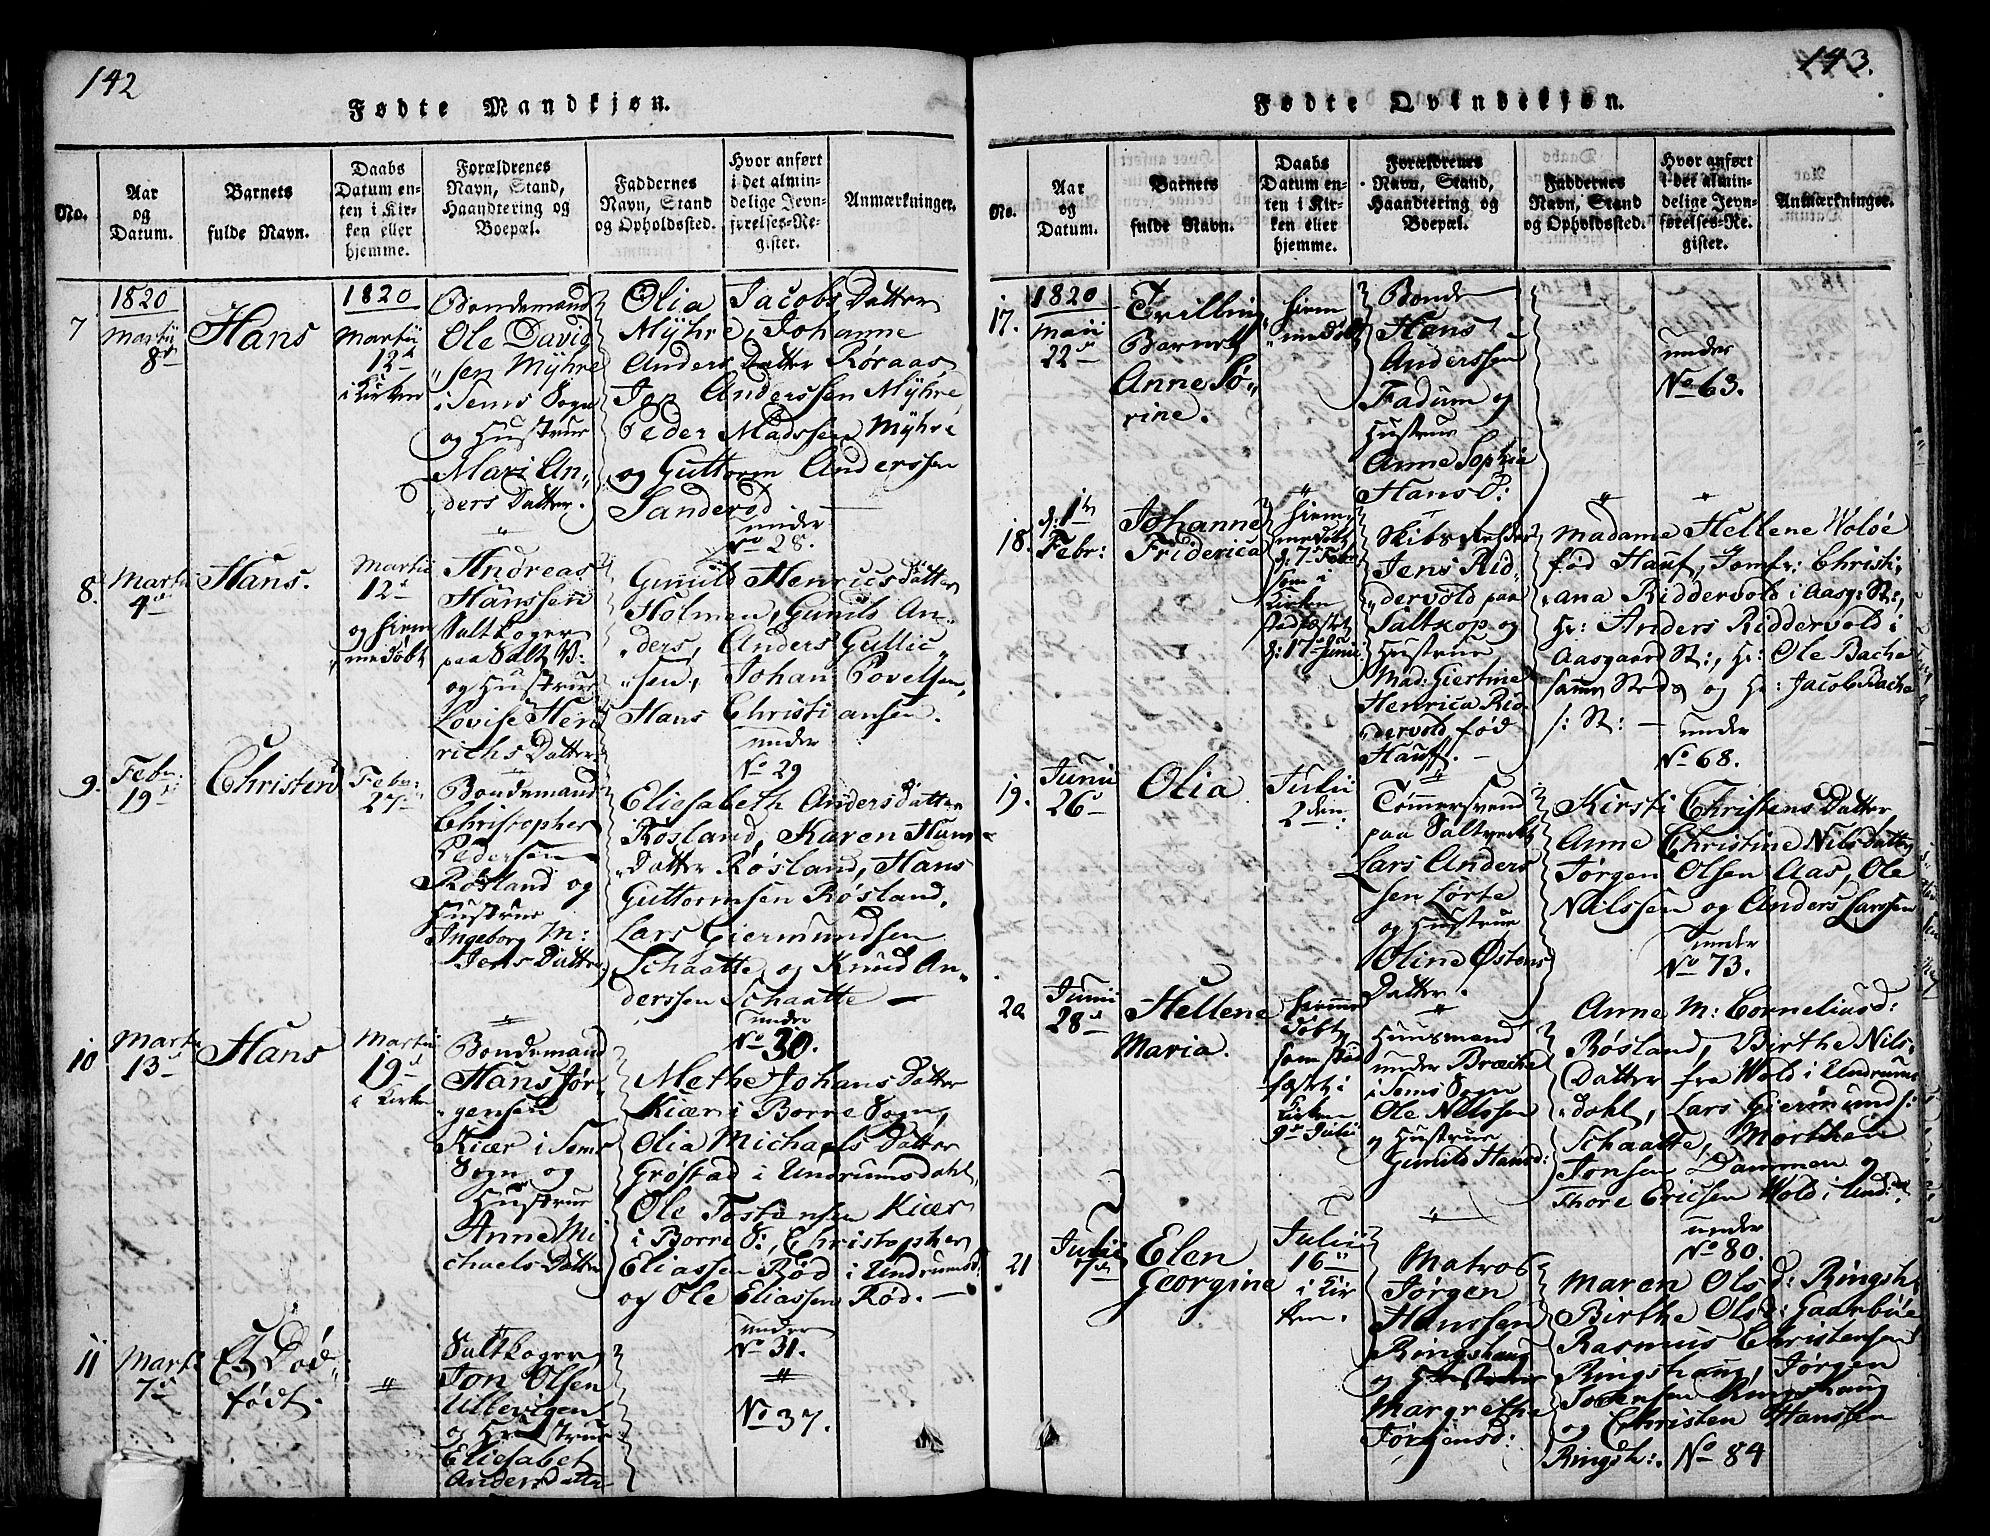 142
Fødte Mandkjøn.
No.
Aar
og
Datum.
Barnets
fulde Navn.
Daabs
Datum en-
ten i Kir-
ken eller
hjemme.
Forældrenes
Navn, Stand,
Haandtering og
Boepæl.
Faddernes
Navn, Stand
og Opholdssted.
Hvor anført
i det almin-
delige Jevn-
førelses-Re-
gister.
Anmærkninger.
7
1820
Martii
8de
Hans
1820
Martii
12te
i Kirken
Bondemand
Ole David
„sen Mÿhre
i Sems Sogn
og Hustrue
Mari An„
„ders Datter.
Olia Jacobs Datter
Mÿhre, Johanne
Anders Datter Røraas,
Anderssen Mÿhre,
Peder Madssen Mÿhre
og Guttorm Anderssen
Sanderød
under
No 28.
8.
Martii
4de
Hans.
Martii
12te
og hiem„
medøbt
Andreas
Hanssen
Saltkoger
paa Salt V:
og Hustrue
Lovise Hen
richs Datter
Gunild Henrics Datter
Holmen, Gunild An„
„ders, Anders Gullic„
„sen, Johan Povelsen,
Hans Christiansen.
under
No 29
9.
Febr:
19de
Christen
Febr:
27de
Bondemand
Christopher
Pedersen
Røsland og
Hustrue
Ingeborg M:
Jens Datter
Eliesabeth Anders Datter
Røsland, Karen Hans
„Datter Røsland, Hans
Guttormsen Røsland,
Lars Giermundsen
Schaatte og Knud An„
derssen Schaatte —
under
No 30.
10
Martii
13de
Hans
Martii
19de
i Kirken
Bondemand
Hans Jør„
„gensen
Kiær i Sems
Sogn og
Hustrue
Anne Mi
chaels Datter
Methe Johans Datter
Kiær i Borre Sogn,
Olia Michaels Datter
Grøstad i Undrumsdahl,
Ole Tostensen Kiær
i Borre S:, Christopher
Eliassen Rød i Undrumsd:
og Ole Eliassen Rød. —
under
No 31.
11
Martii
7de
Et Død„
født.
„
Saltkoger
Jon Olsen
Ullevigen
og Hustrue
Eliesabet
Anders Datter
No 37.
143.
Fødte Qvindekjøn.
No.
Aar
og
Datum.
Barnets
fulde Navn.
Daabs
Datum en-
ten i Kir-
ken eller
hjemme.
Forældrenes
Navn, Stand,
Haandtering og
Boepæl.
Faddernes
Navn, Stand
og Opholdssted.
Hvor anført
i det almin-
delige Jevn-
førelses-Re-
gister.
Anmærkninger.
17.
1820
Maii
22de
Trilling
Barnet
Anne Sø„
rine.
hiem
„medøbt
Bonde
Hans
Anderssen
Fadum og
Hustrue
Anne Sophie
Hans D:
under
No 63.
18.
d: 1te
Febr:
Johanne
Friderica
hiem„
medøbt
d: 7de Febr
som i
Kirken
stadfæstet
d: 17de Junii
Skibs
Jens Rid„
„dervold paa
Saltkop og
Hustrue
Mad: Giertine
Henrica Rid„
„dervold fød
Hauf. —
Madame Hellene Woløe
fød Hauf, Jomfr: Christi„
„ana Riddervold i Aasg: St:,
Hr: Anders Riddervold i
Aasgaard St:, Hr: Ole Bache
samme Steds og Hr: Jacob Bache
s: St: —
under
No 68.
19.
Junii
26de
Olia
Julii
2den
Tømmersvend
paa Saltverket
Lars Anders
sen Lørte
og Hustrue
Oline Østens
Datter.
Kirsti Christens Datter
Anne Christine Nils Datter
Jørgen Olsen Aas, Ole
Nilssen og Anders Larssen
under
No 73.
20
Junii
28de
Hellene
Maria.
hiemme
døbt,
som stad
fæstet i
Kirken
9de Julii
Huusmand
under Bræche
i Sems Sogn
Ole Nilssen
og Hustrue
Gunild Hansd:
Anne M: Corneliusd:
Røsland, Birthe Nils„
„Datter fra Wold i Undrums
„dahl, Lars Giermunds:
Schaatte, Morthen
Jonsen Dammen og
Thore Ericsen Wold i Und:
under
No 80.
21
Julii
7de
Elen
Georgine
Julii
16de
i Kir
ken.
Matros
Jørgen
Hanssen
Ringshaug
og Hustrue
Margrethe
Jørgensd:
Maren Olsd: Ringsh:
Birthe Olsd: Gaarboe
Rasmus Christensen
Ringshaug, Jørgen
Ringshaug
og Christen Hanssen
Ringsh:. No 84